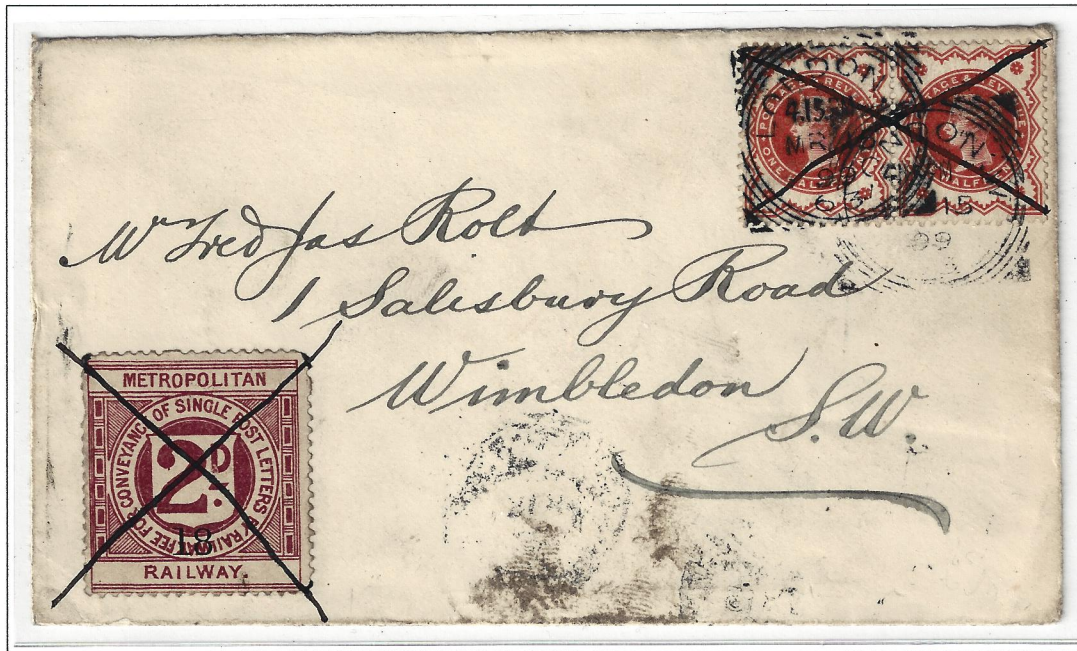 LONDON
4.15
MR
98
63
POSTAGE & REVENUE
ONE HALFPENNY
LONDON
15
Mr Fred Jas Rolt
1 Salisbury Road
Wimbledon
S.W.
METROPOLITAN
FEE FOR CONVEYANCE OF SINGLE POST LETTERS BY RAILWAY
2D.
18
RAILWAY